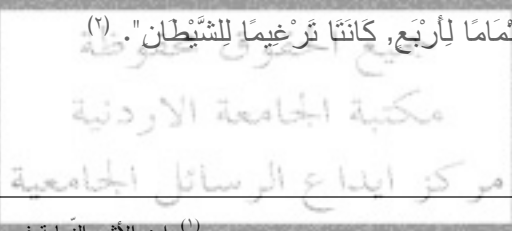 تْمَامًا لِأَرْبَعٍ, كَانَتَا تَرْغِيمًا لِلشَّيْطَانِ". (٢)
جميع الحقوق محفوظة
مكتبة الجامعة الاردنية
مركز ايداع الرسائل الجامعية
(١)